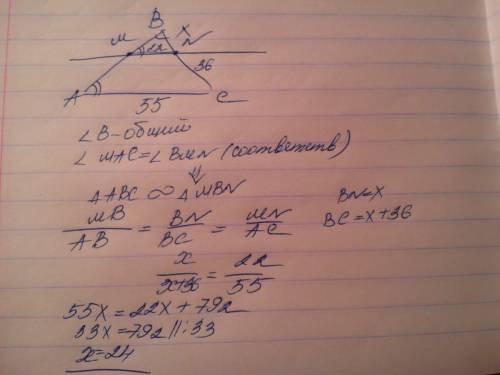 B
M 22 X N
36
A 55 C
∠B-общий
∠ MAC = ∠ BMN (соответств)
⇓
△ABC ∞ △MBN
BN=X
MB/AB = BN/BC = MN/AC
BC = X+36
x/x+36 = 22/55
55X = 22X + 792
33X = 792 ||: 33
x = 24